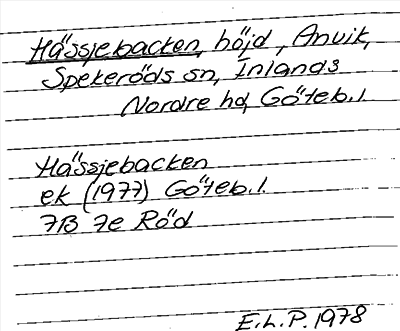 Hässjebacken, höjd, Anvik,
Spekeröds sn, Inlands
Nordre hd, Göteb. l.
Hässjebacken
ek (1977) Göteb. l.
7B 7e Röd
E.L.P. 1978